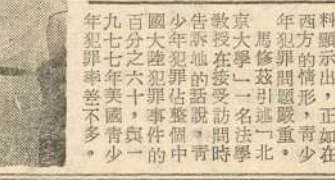 料顯示出，正如在
西方的情形，青少
年犯罪問題嚴重。
馬修茲引述「北
京大學」一名法學
教授在接受訪問時
告訴她的話說，青
少年犯罪佔整個中
國大陸犯罪事件的
百分之六十，與一
九七七年美國青少
年犯罪率差不多。